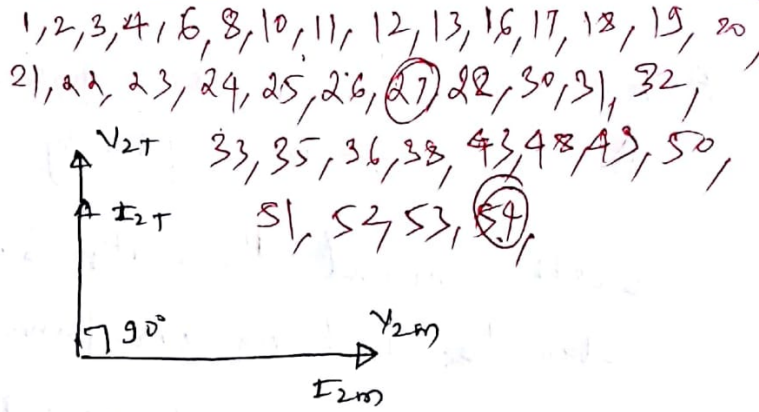 1, 2, 3, 4, 6, 8, 10, 11, 12, 13, 16, 17, 18, 19, 20,
21, 22, 23, 24, 25, 26, 27 28, 30, 31, 32,
33, 35, 36, 38, 43, 48, 49, 50,
51, 52, 53, 54,
V2T
I2T
90°
V2m
I2m